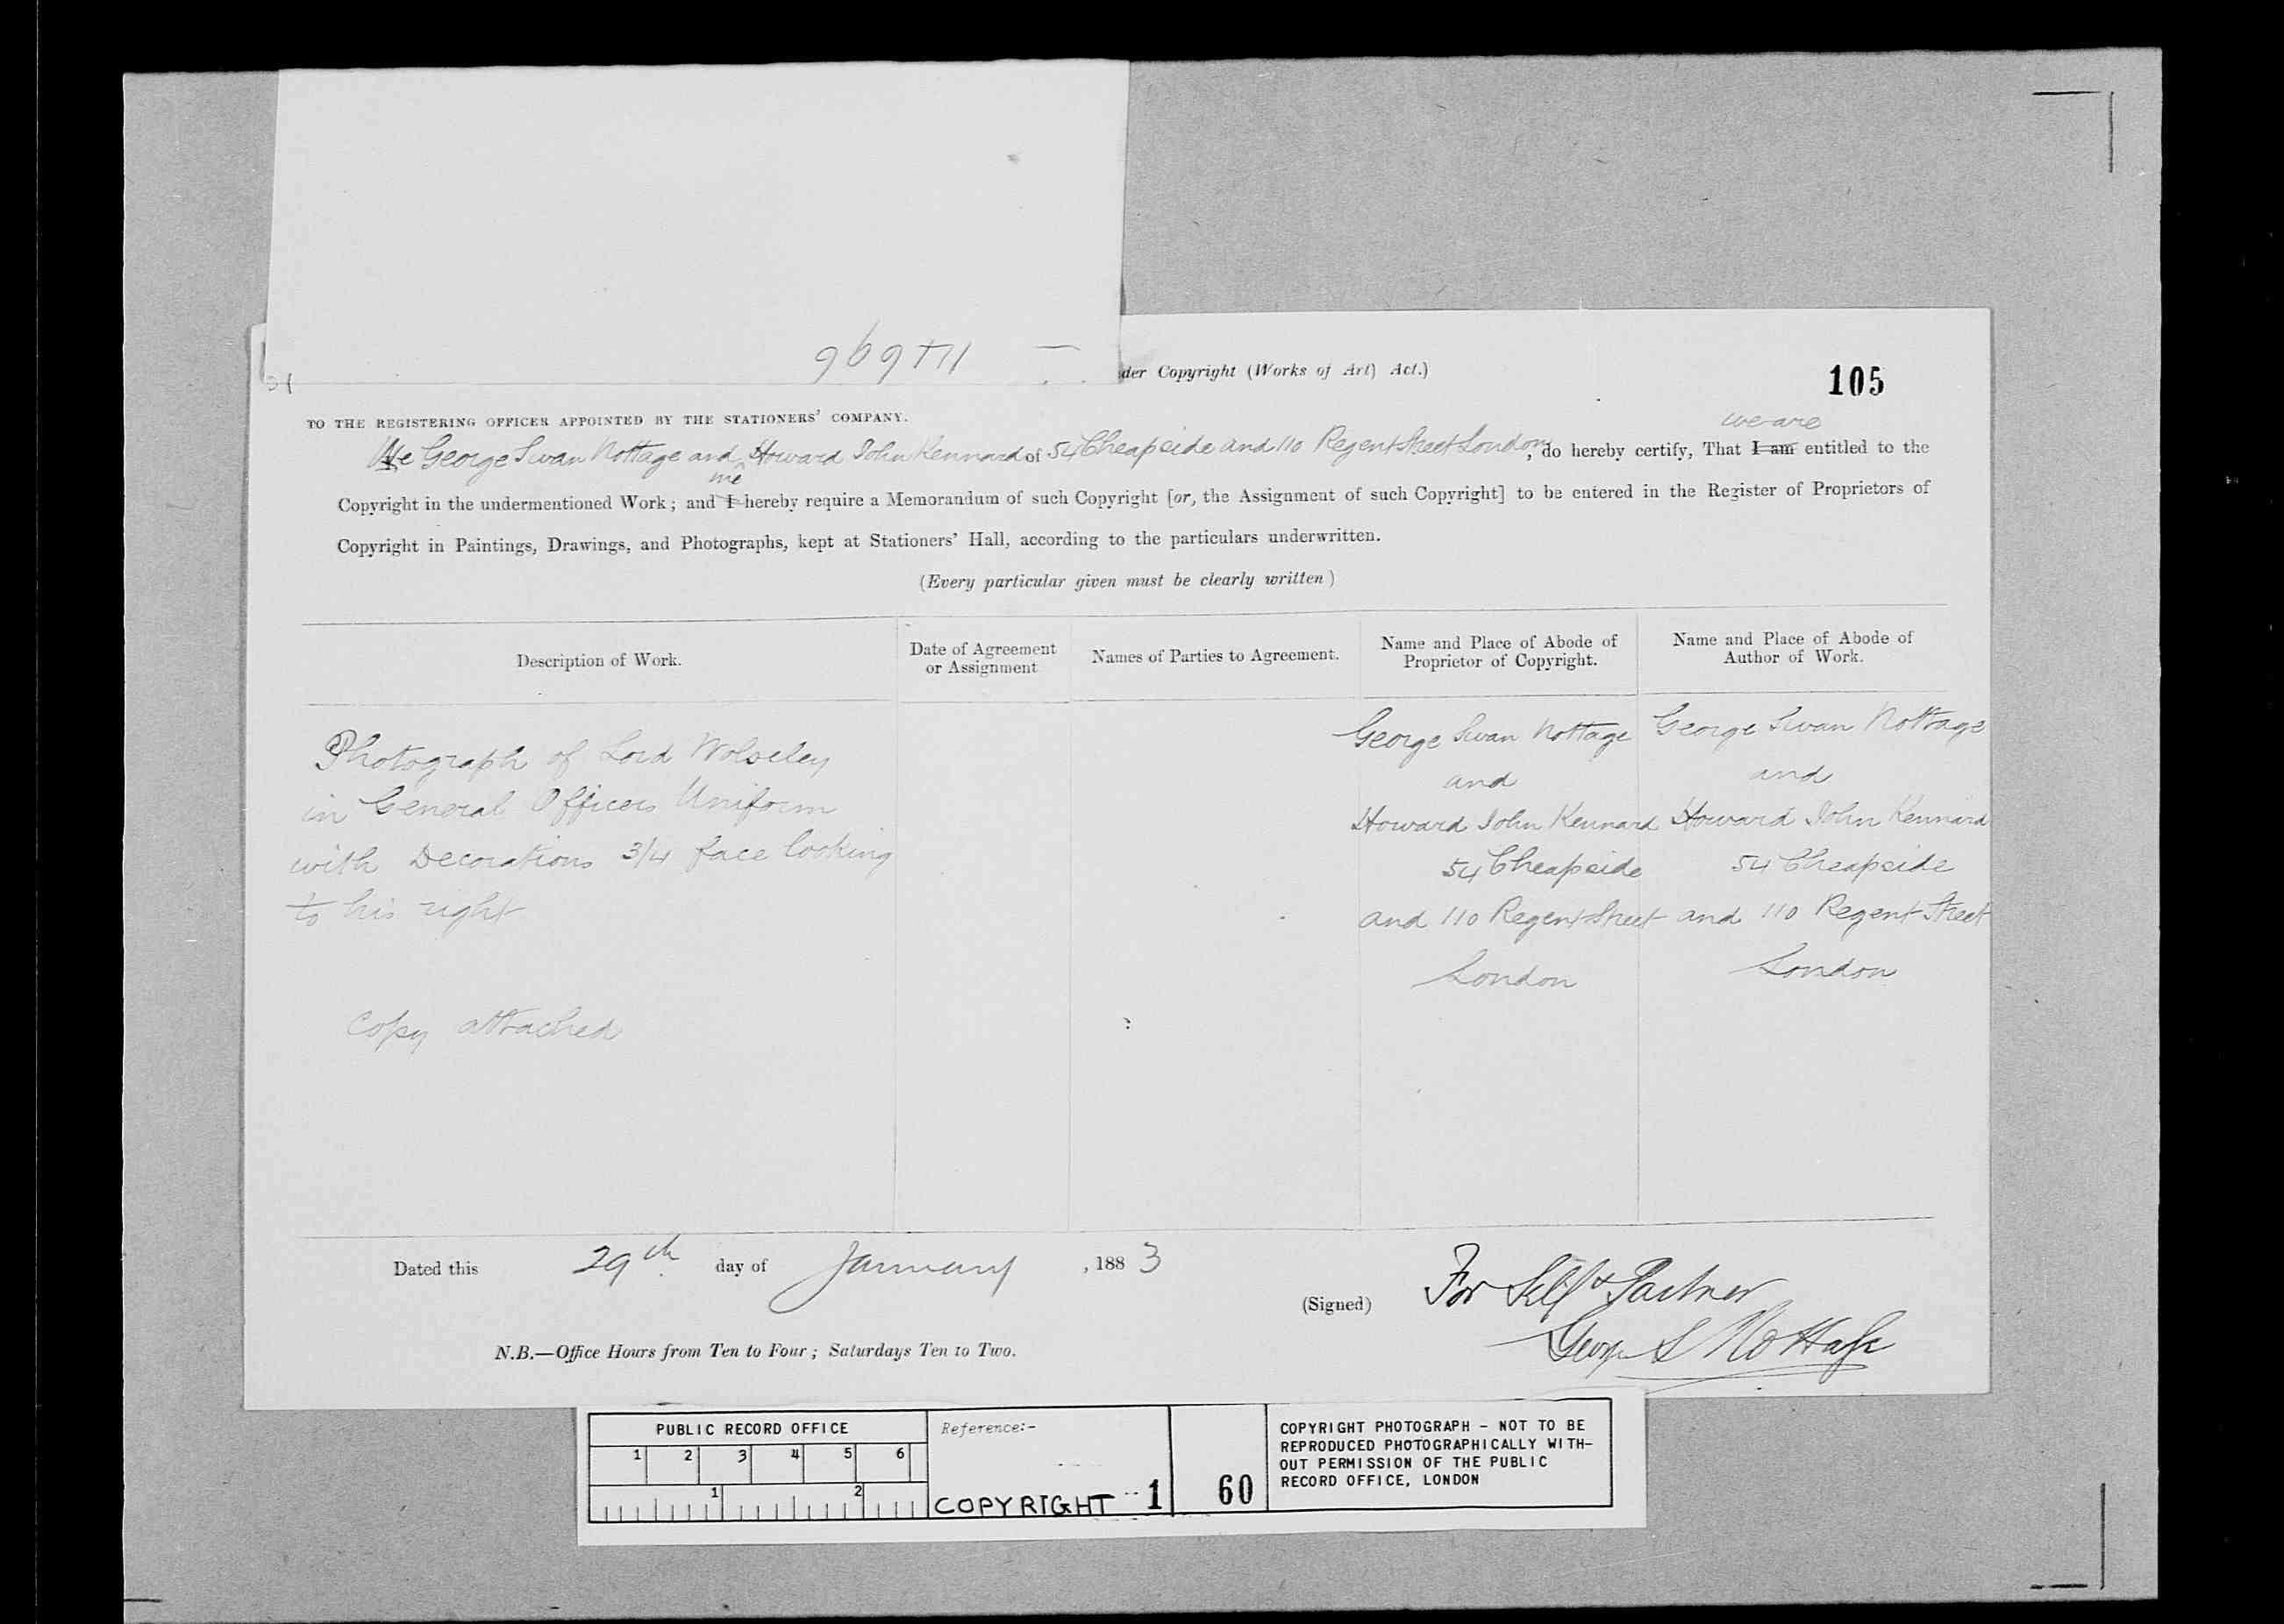 der Copyright (Works of Art) Act.)
105
TO THE REGISTERING OFFICER APPOINTED BY THE STATIONERS' COMPANY.
we are
We George Swan Nottage and Howard John Kennard of 54 Cheapside and 110 Regent Street London, do hereby certify, That I am entitled to the
we
Copyright in the undermentioned Work; and I hereby require a Memorandum of such Copyright [or, the Assignment of such Copyright] to be entered in the Register of Proprietors of
Copyright in Paintings, Drawings, and Photographs, kept at Stationers' Hall, according to the particulars underwritten.
(Every particular given must be clearly written)
Description of Work.
Date of Agreement
or Assignment
Names of Parties to Agreement.
Name and Place of Abode of
Proprietor of Copyright.
Name and Place of Abode of
Author of Work.
Photograph of Lord Wolseley
in General Officers Uniform
with Decorations 3/4 face looking
to his right
Copy attached
George Swan Nottage
and
Howard John Kennard
54 Cheapside
and 110 Regent Street
London
George Swan Nottage
and
Howard John Kennard
54 Cheapside
and 110 Regent Street
London
Dated this 29th day of January, 1883
(Signed) For Self & Partner
George S Nottage
N.B.—Office Hours from Ten to Four; Saturdays Ten to Two.
PUBLIC RECORD OFFICE
1 2 3 4 5 6
1 2
Reference:-
COPYRIGHT 1
60
COPYRIGHT PHOTOGRAPH - NOT TO BE
REPRODUCED PHOTOGRAPHICALLY WITH-
OUT PERMISSION OF THE PUBLIC
RECORD OFFICE, LONDON